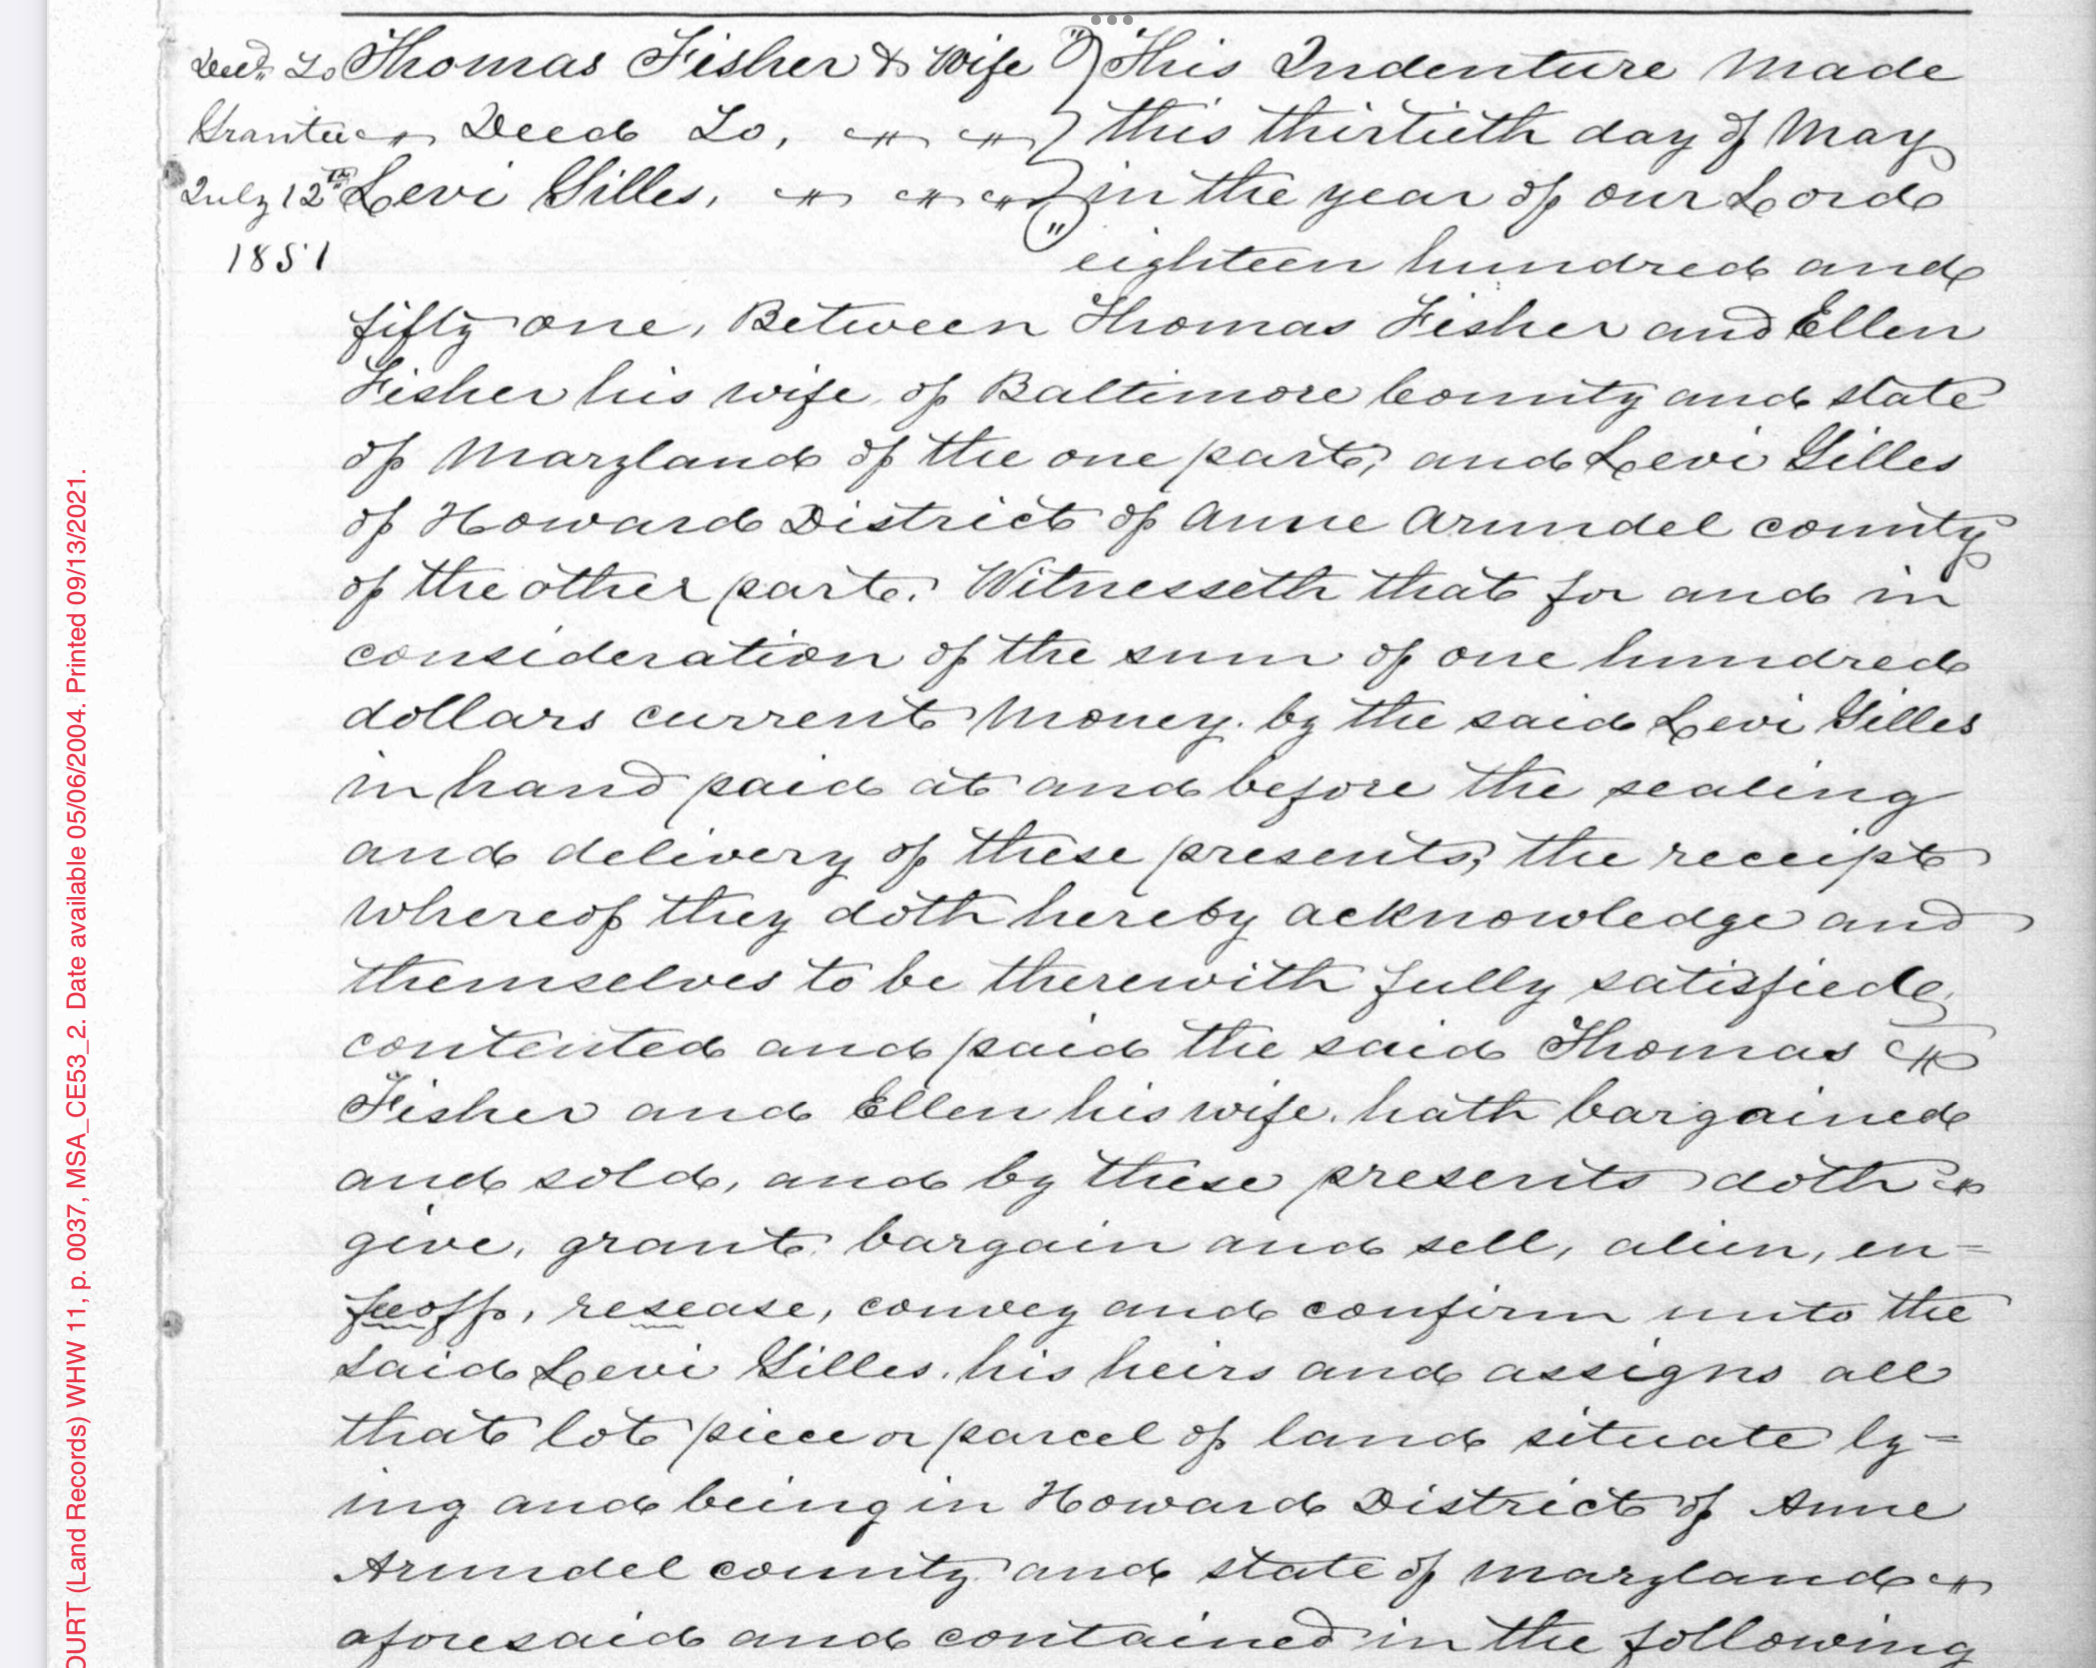 Deed. To Thomas Fisher & Wife " This Indenture Made
Grantee Deed To, this thirtieth day of May
July 12th Levi Gilles, in the year of our Lord
1851 " eighteen hundred and
fifty one, Between Thomas Fisher and Ellen
Fisher his wife of Baltimore County and state
of Maryland of the one part, and Levi Gilles
of Howard District of Anne Arundel county
of the other part. Witnesseth that for and in
consideration of the sum of one hundred
dollars current Money. by the said Levi Gilles
in hand paid at and before the sealing
and delivery of these presents, the receipt
whereof they doth hereby acknowledge and
themselves to be therewith fully satisfied,
contented and paid the said Thomas
Fisher and Ellen his wife. hath bargained
and sold, and by these presents doth
give, grant, bargain and sell, alien, en=
feoff, resease, convey and confirm unto the
said Levi Gilles. his heirs and assigns all
that lot piece or parcel of land situate ly=
ing and being in Howard District of Anne
Arundel county and state of Maryland
aforesaid and contained in the following
OURT (Land Records) WHW 11, p. 0037, MSA_CE53_2. Date available 05/06/2004. Printed 09/13/2021.